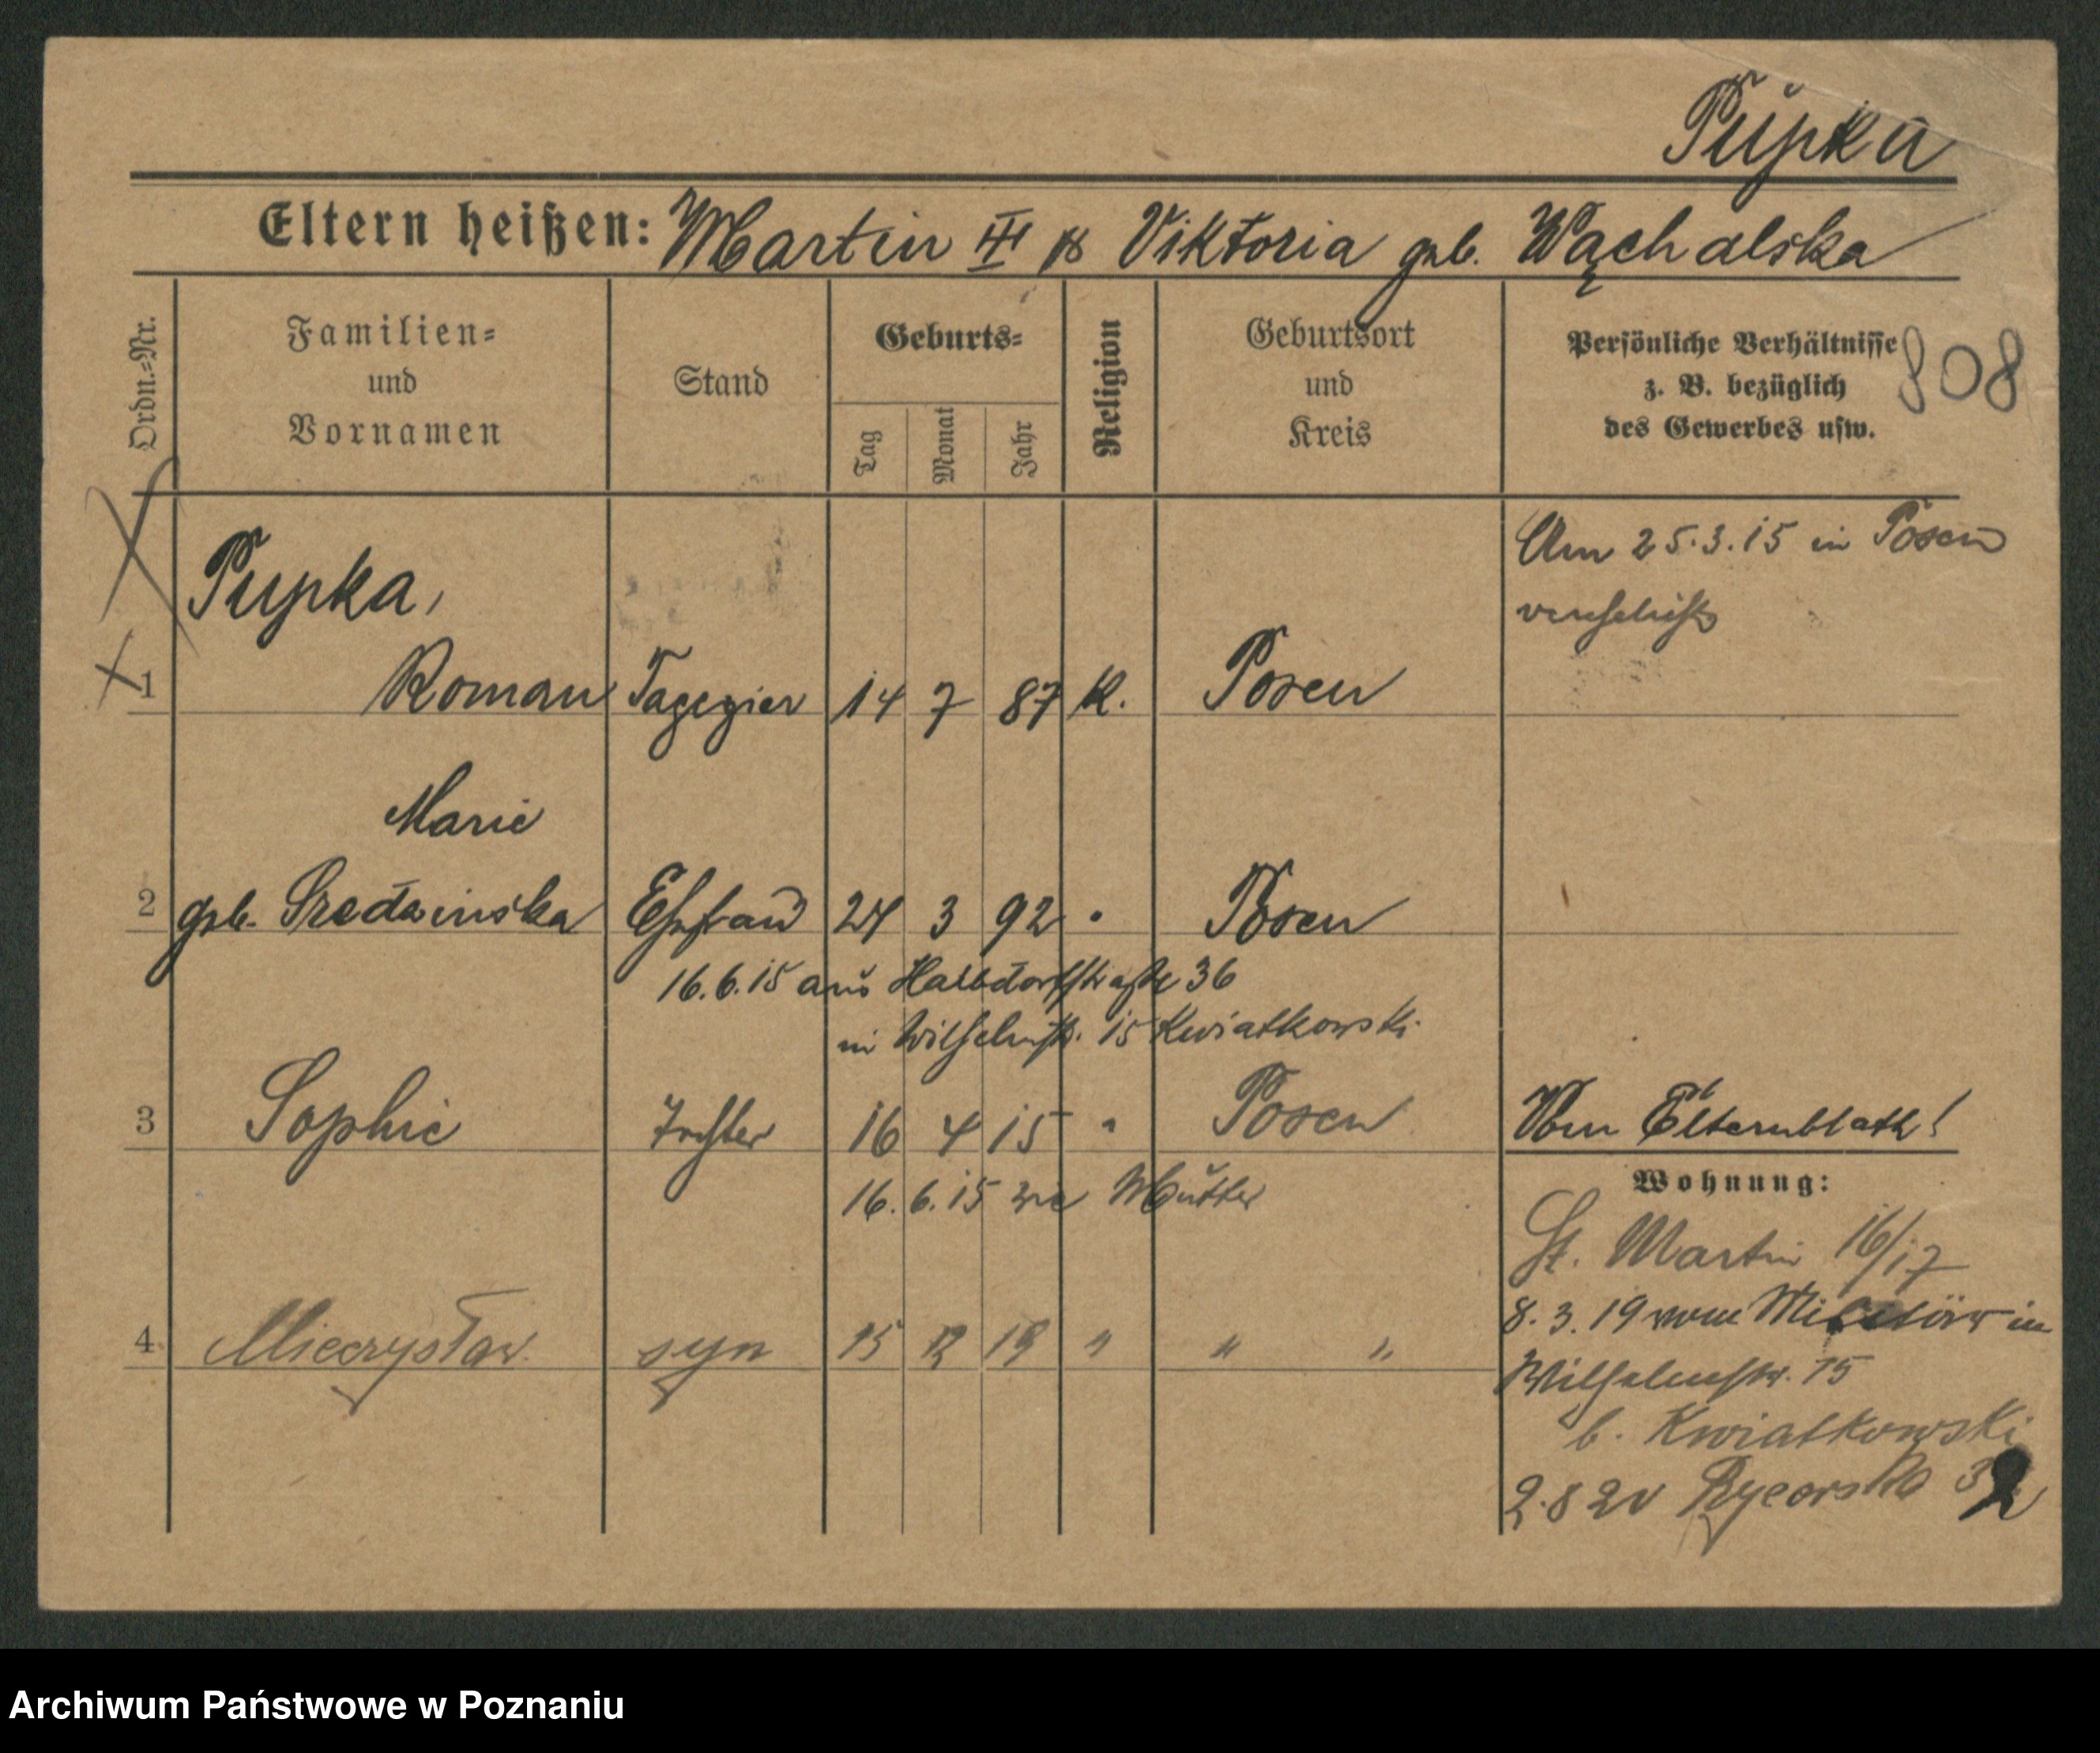 Pupka
Eltern heißen: Martin III & Viktoria geb. Wąchalska
Ordn.=Nr.
Familien=
und
Vornamen
Stand
Geburts=
Tag
Monat
Jahr
Religion
Geburtsort
und
Kreis
Persönliche Verhältnisse
z. B. bezüglich
des Gewerbes usw.
808
Am 25.3.15 in Posen
verehelicht
Pupka,
1 Roman Tapezier 14 7 87 K. Posen
Marie
2 geb. Ehefrau 24 3 92 " Posen
16.6.15 aus Halbdorfstraße 36
in Wilhelmstr. 15 Kwiatkowski
3 Sophie Tochter 16 4 15 " Posen
Vom Elternblatt!
16.6.15 wie Mutter
Wohnung:
St. Martin 16/17
8.3.19 vom Militär in
Wilhelmstr. 15
b. Kwiatkowski
4 Mieczysław syn 15 12 19 " " "